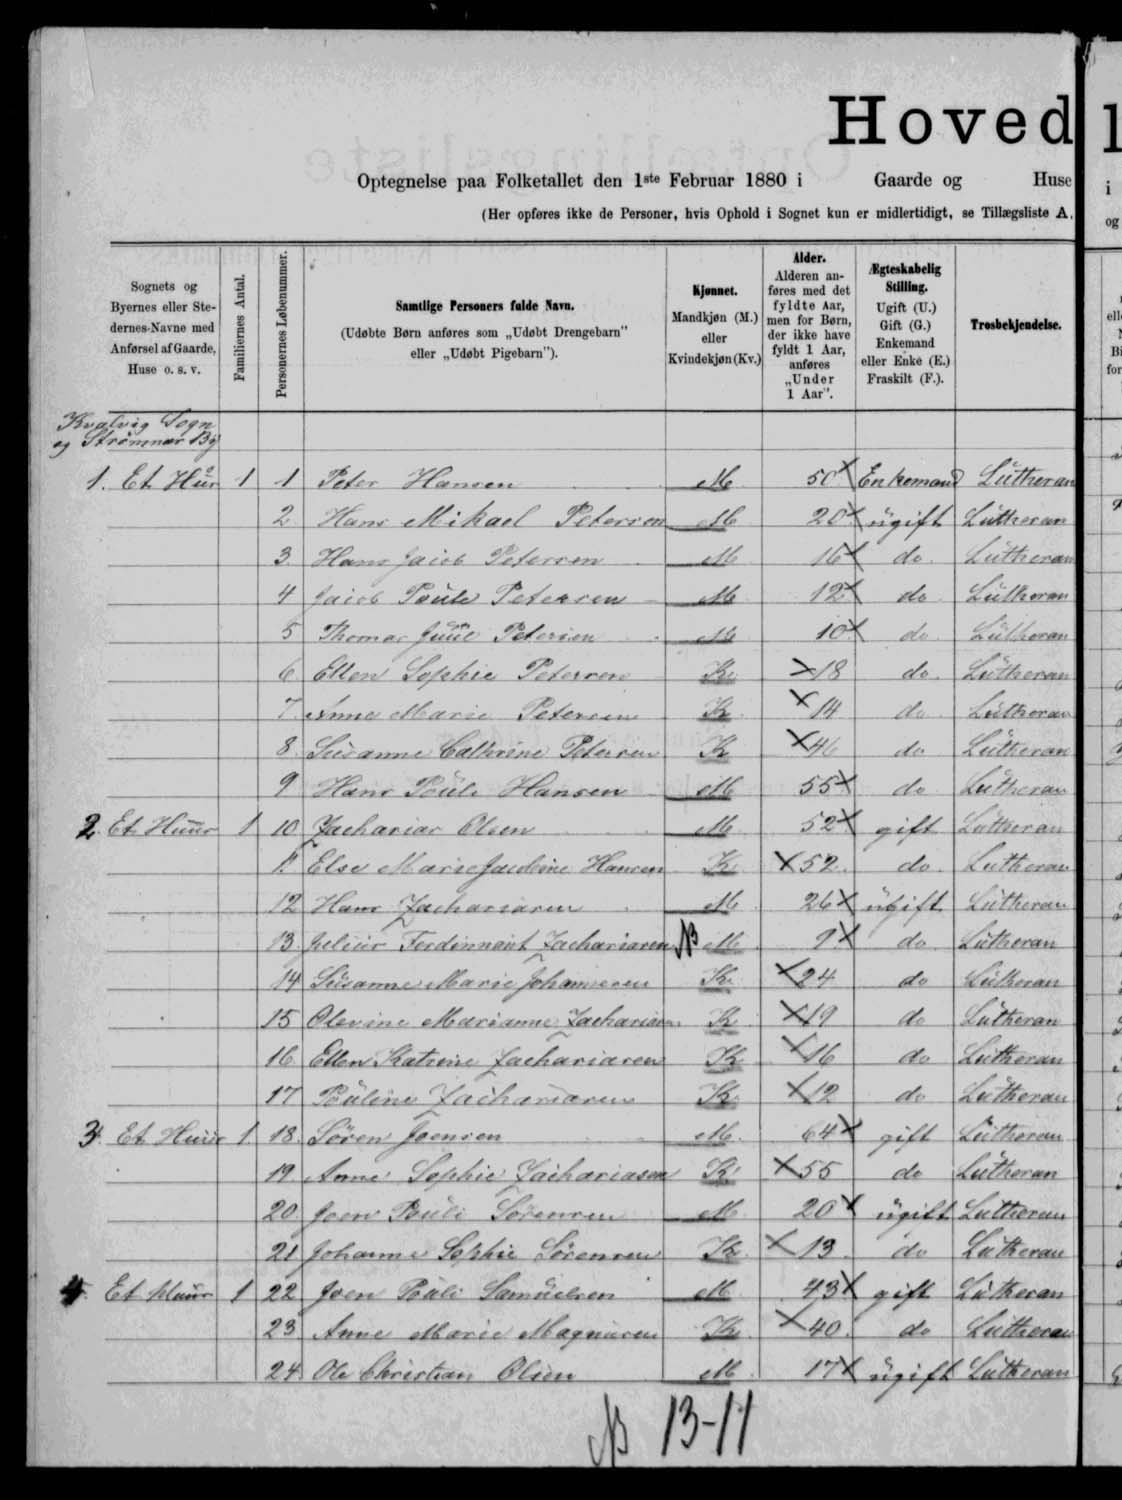 Hoved
Optegnelse paa Folketallet den 1ste Februar 1880 i Gaarde og Huse
(Her opføres ikke de Personer, hvis Ophold i Sognet kun er midlertidigt, se Tillægsliste A.
Sognets og Byernes eller Stedernes-Navne med Anførsel af Gaarde, Huse o. s. v.
Familiernes Antal.
Personernes Løbenummer.
Samtlige Personers fulde Navn.
(Udøbte Børn anføres som „Udøbt Drengebarn" eller „Udøbt Pigebarn").
Kjønnet.
Mandkjøn (M.) eller Kvindekjøn (Kv.)
Alder.
Alderen anføres med det fyldte Aar, men for Børn, der ikke have fyldt 1 Aar, anføres „Under 1 Aar".
Ægteskabelig Stilling.
Ugift (U.) Gift (G.) Enkemand eller Enke (E.) Fraskilt (F.).
Trosbekjendelse.
Kvalvig Sogn
og Strømnæs By
1. Et Huus 1 1 Peter Hansen M 50 Enkemand Lutheran
2 Hans Mikael Petersen M 20 ugift Lutheran
3. Hans Jacob Petersen M 16 do. Lutheran
4 Jacob Poule Petersen M 12 do Lutheran
5 Thomas Juul Petersen M 10 do. Lutheran
6. Ellen Sophie Petersen K 18 do. Lutheran
7. Anne Marie Petersen K 14 do Lutheran
8. Susanne Cathrine Petersen K 46 do Lutheran
9 Hans Poule Hansen M 55 do Lutheran
2. Et Huus 1 10 Zacharias Olsen M 52 gift Lutheran
11 Else Marie Jacobine Hansen K 52. do. Lutheran
12 Hans Zachariasen M 26 ugift Lutheran
13. Julius Ferdinnant Zachariasen NB M 9 do Lutheran
14 Susanne Marie Johannesen K 24 do Lutheran
15 Olevine Marianne Zachariasen K 19 do Lutheran
16. Ellen Katrine Zachariasen K 16 do Lutheran
17 Pouline Zachariasen K 12 do Lutheran
3. Et Huus 1 18. Søren Joensen M. 64 gift Lutheran
19. Anne Sophie Zachariasen K 55 do Lutheran
20. Joen Pouli Sørensen M 20 ugift Lutheran
21 Johanne Sophie Sørensen K 13 do Lutheran
4. Et Huus 1 22 Joen Pouli Samuelsen M 43 gift Lutheran
23 Anne Marie Magnusen K 40. do Lutheran
24. Ole Christian Olsen M 17 ugift Lutheran
NB 13-11